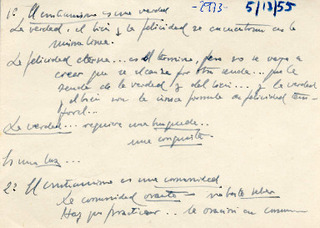 -2973-
5/13/55
1º El cristianismo es una verdad
La verdad, el bien y la felicidad se encuentran en la
misma línea.
La felicidad eterna... es el término, pero no se vaya a
creer que se alcanza por otra senda... que la
senda de la verdad y del bien... y la verdad
y el bien son la única formula de felicidad
La verdad... requiere una busqueda...
una conquista
Es una luz...
2º El cristianismo es una comunidad
La comunidad orante - no basta saber
Hay que practicar... la oración en comun